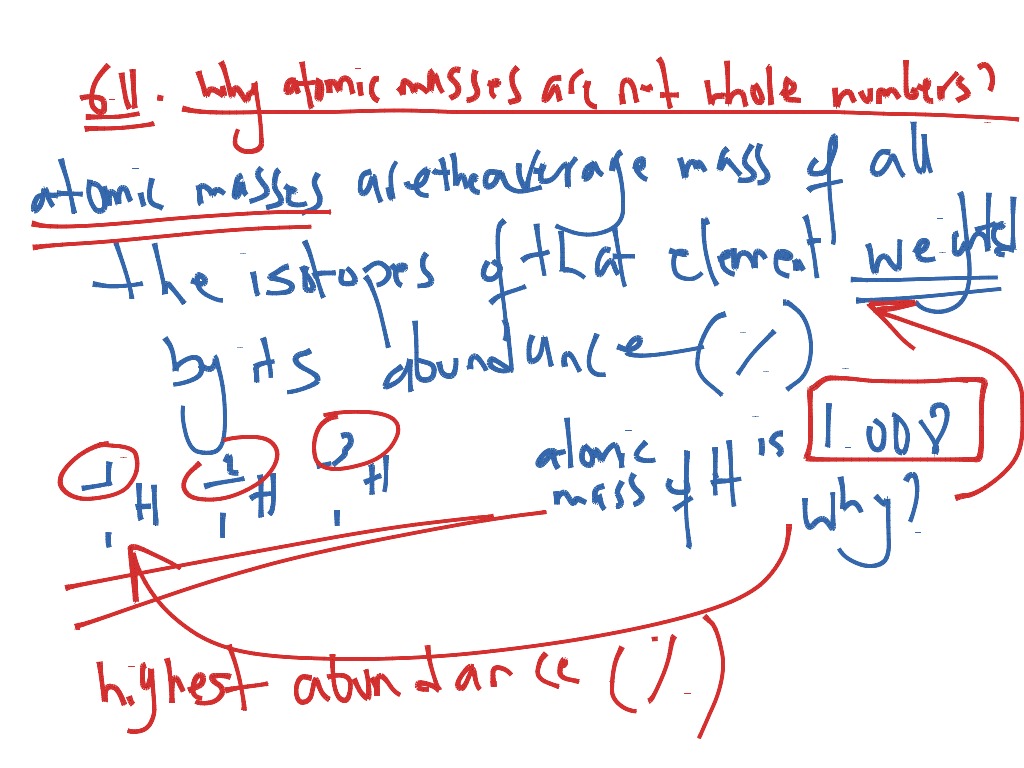 6.11. Why atomic masses are not whole numbers?
atomic masses are the average mass of all
the isotopes of that element weighted
by its abundance (%)
1 1 H 2 1 H 3 1 H
atomic mass of H is 1.008
why?
highest abundance (%)